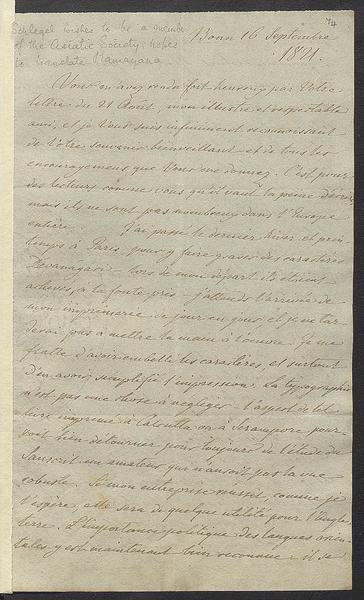 74
Schlegel wishes to be a member
of the Asiatic Society; hopes
to translate Ramayana.
Bonn 16 Septembre
1821.
Vous m'avez rendu fort heureux par Votre
lettre du 21 Août, mon illustre et respectable
ami, et je Vous suis infiniment reconnoissant
de Votre souvenir bienveillant et de tous les
encouragemens que Vous me donnez. C'est pour
des lecteurs comme vous qu'il vaut la peine d'écrire,
mais ils ne sont pas nombreux dans l'Europe
entière. J'ai passé le dernier hiver et prin-
temps à Paris pour y faire graver des caractères
Dévanagari. Lors de mon départ ils étoient
achevés, à la fonte près. J'attends l'arrivée de
mon imprimerie de jour en jour, et je ne tar-
derai pas à mettre la main à l'oeuvre. Je me
flatte d'avoir embelli les caractères, et surtout
d'en avoir simplifié l'impression. La typographie
n'est pas une chose à négliger: l'aspect de tel
livre imprimé à Calcutta ou à Serampore, pour-
roit bien détourner pour toujours de l'étude du
Sanscrit un amateur qui n'auroit pas la vue
robuste. Si mon entreprise réussit, comme je
l'espère, elle sera de quelque utilité pour l'Angle-
terre. L'importance politique des langues orien-
tales y est maintenant bien reconnue: il se